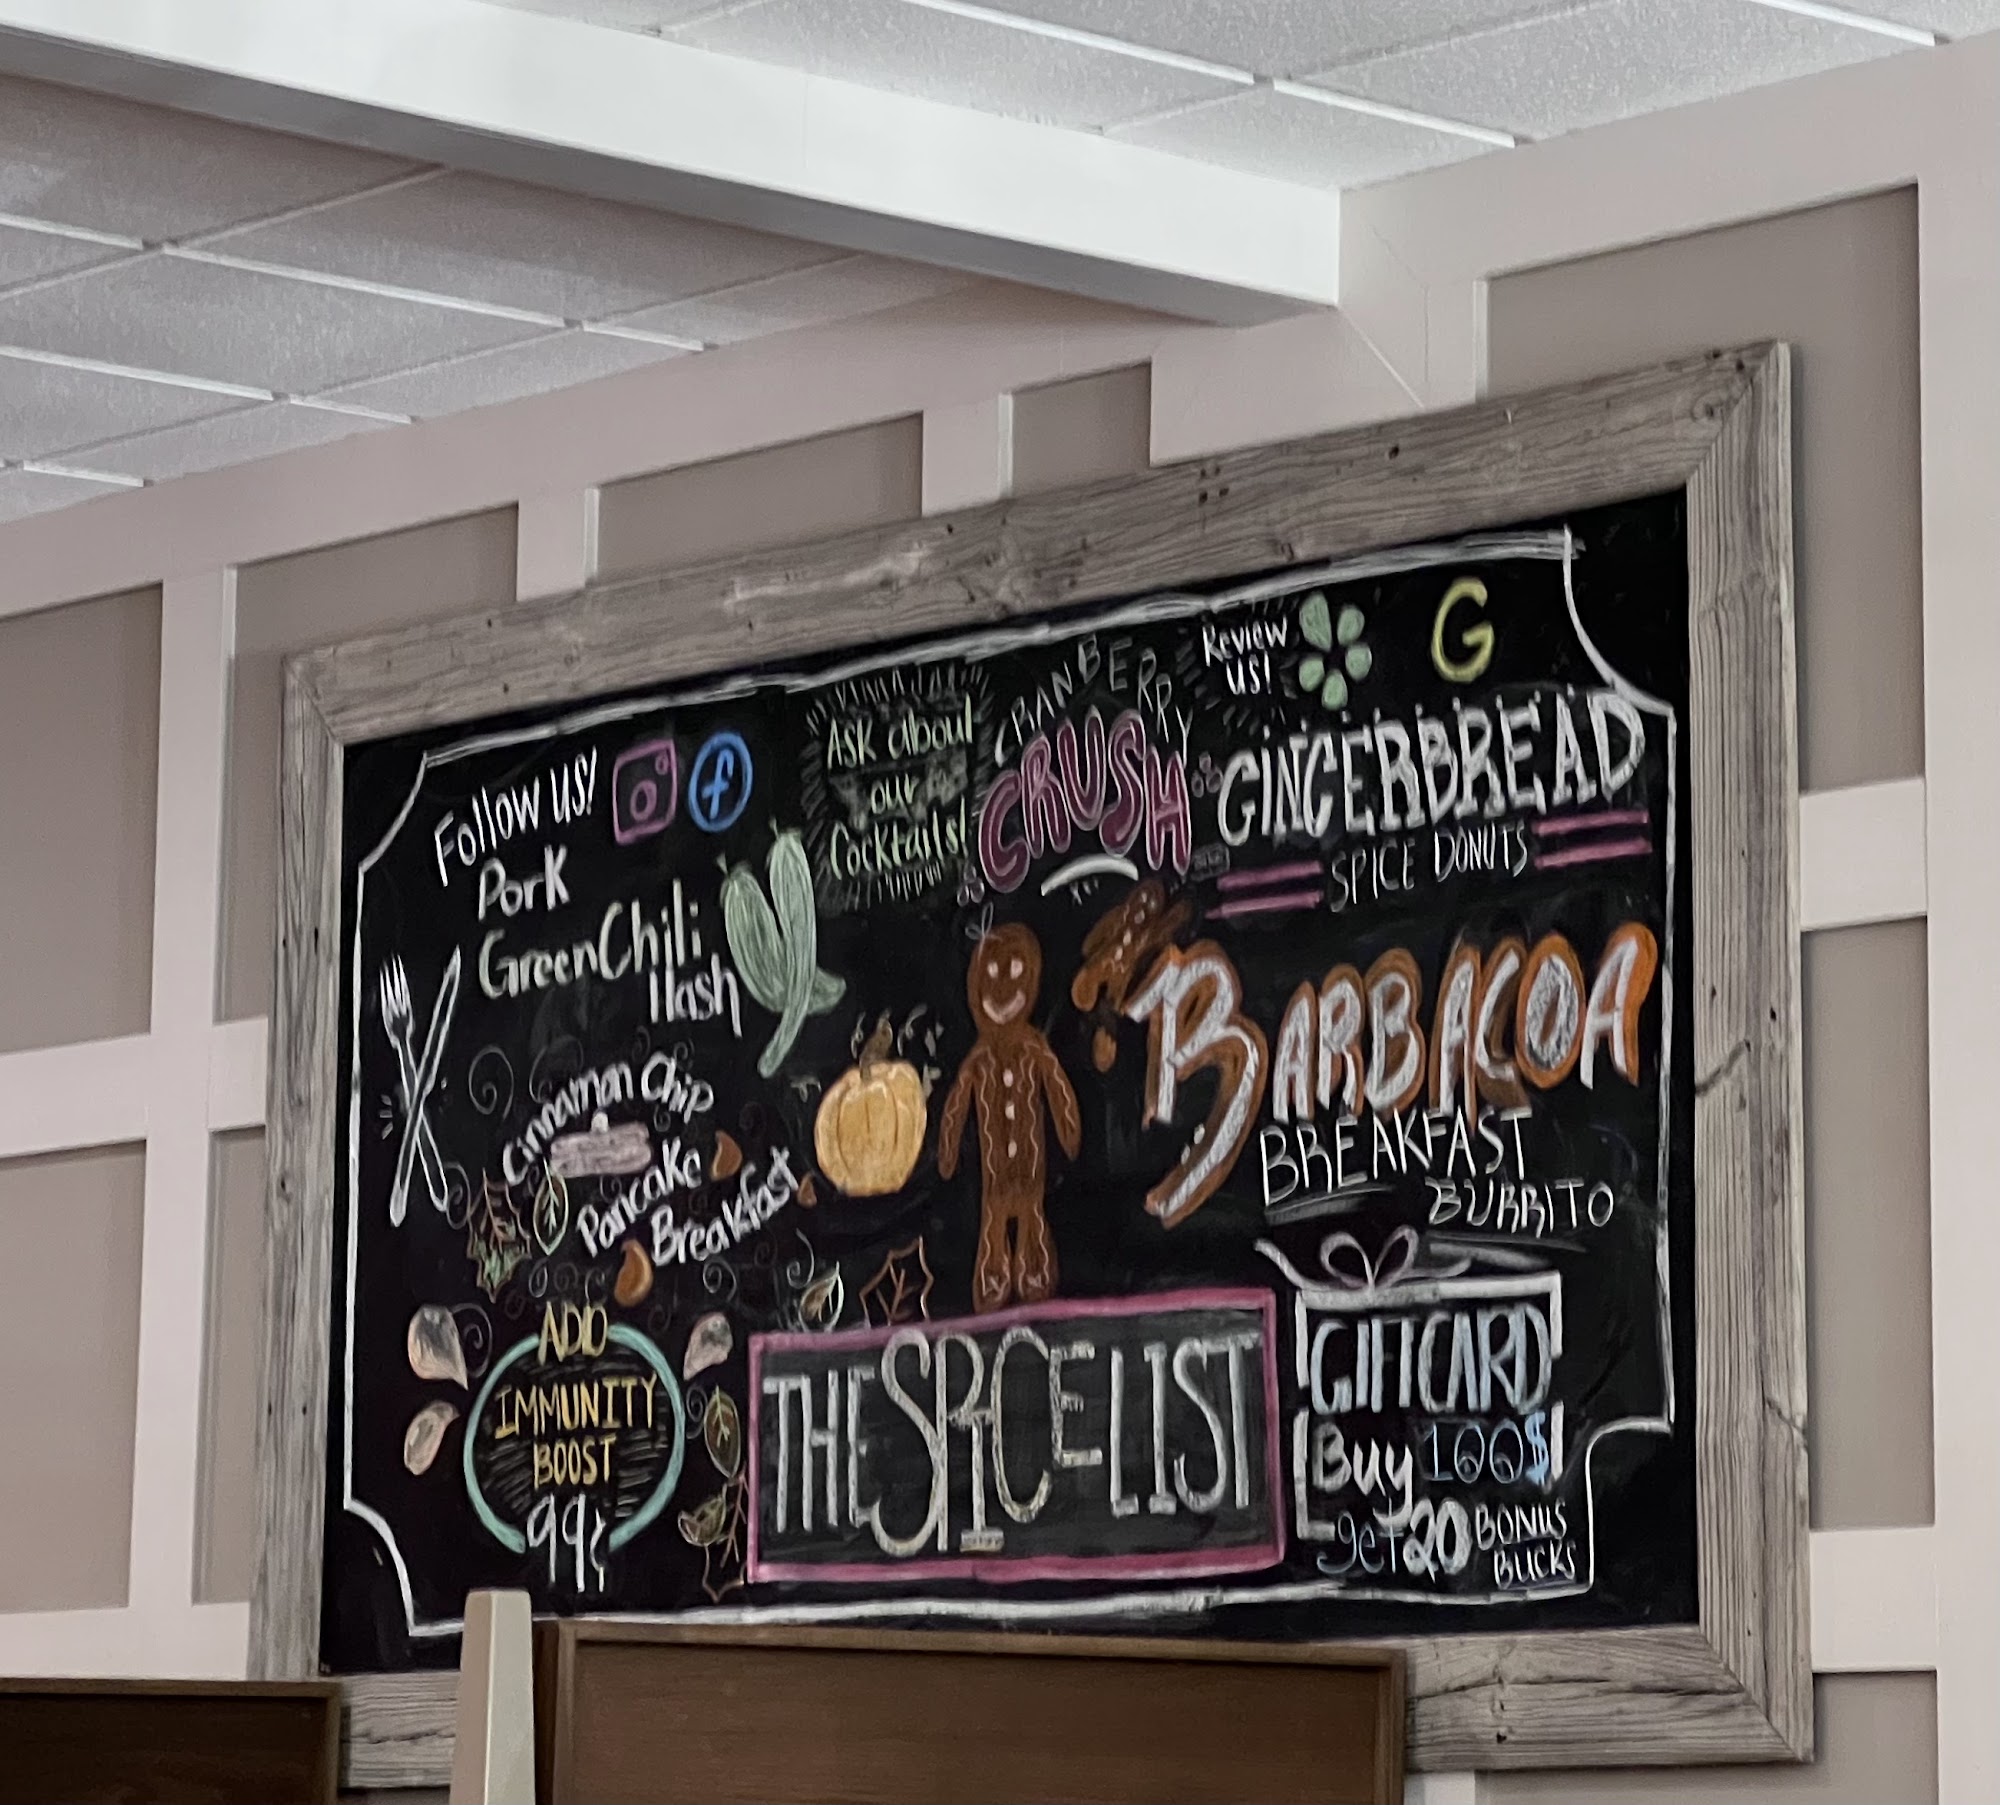 Follow us!
f
Pork
Green Chili
Hash
Cinnamon Chip
Pancake
Breakfast
ADD
IMMUNITY
BOOST
99¢
Ask about
our
Cocktails!
CRANBERRY
CRUSH
Review
us!
G
GINGERBREAD
SPICE DONUTS
BARBACOA
BREAKFAST
BURRITO
THE SPICE LIST
GIFTCARD
Buy 100$
get 20 BONUS
BUCKS